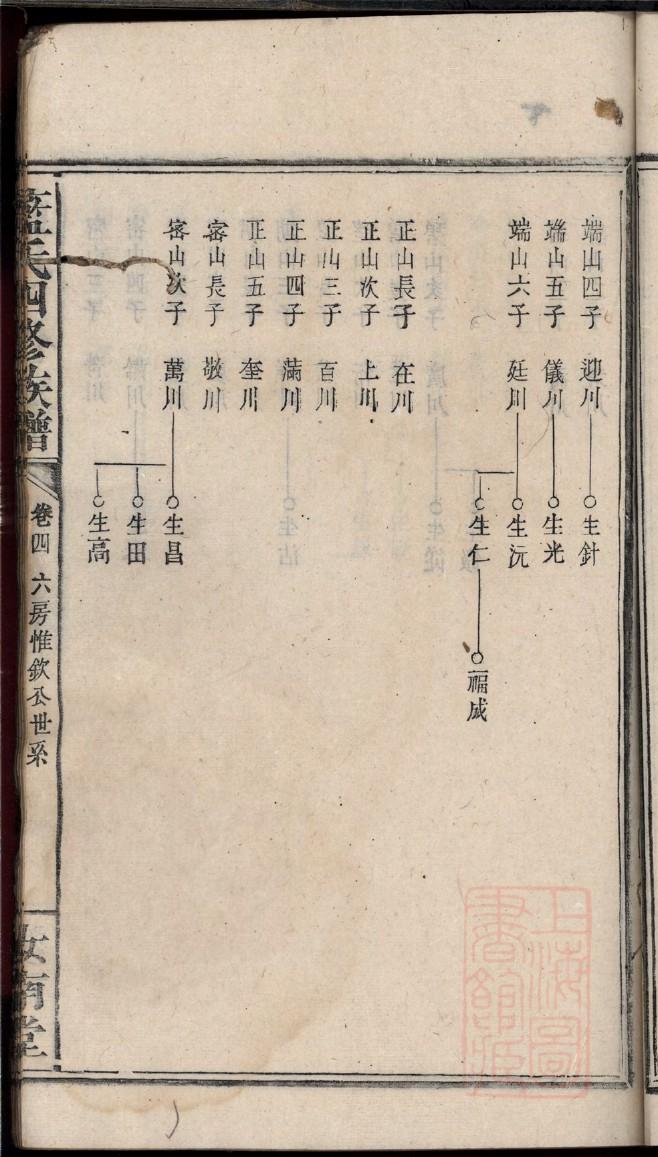 端山四子 迎川 生針
端山五子 儀川 生光
端山六子 廷川 生沅
生仁 福威
正山長子 在川
正山次子 上川
正山三子 百川
正山四子 滿川
正山五子 奎川
密山長子 敬川
密山次子 萬川 生昌
生田
生高
藍氏四修族譜
卷四 六房惟欽公世系
汝南堂
上海圖書館藏